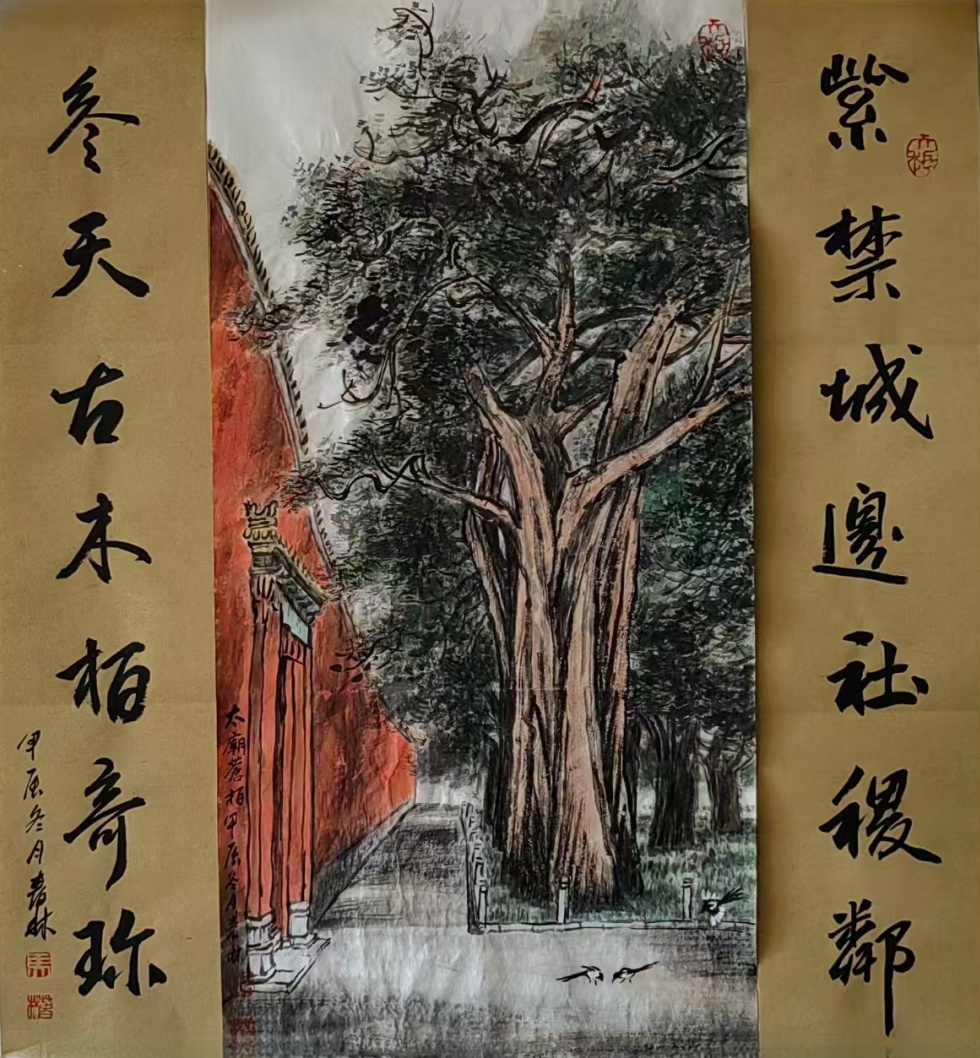 紫禁城邊社稷鄰
参天古木柏奇珎
甲辰冬月春林
太廟蒼柏甲辰冬月春林